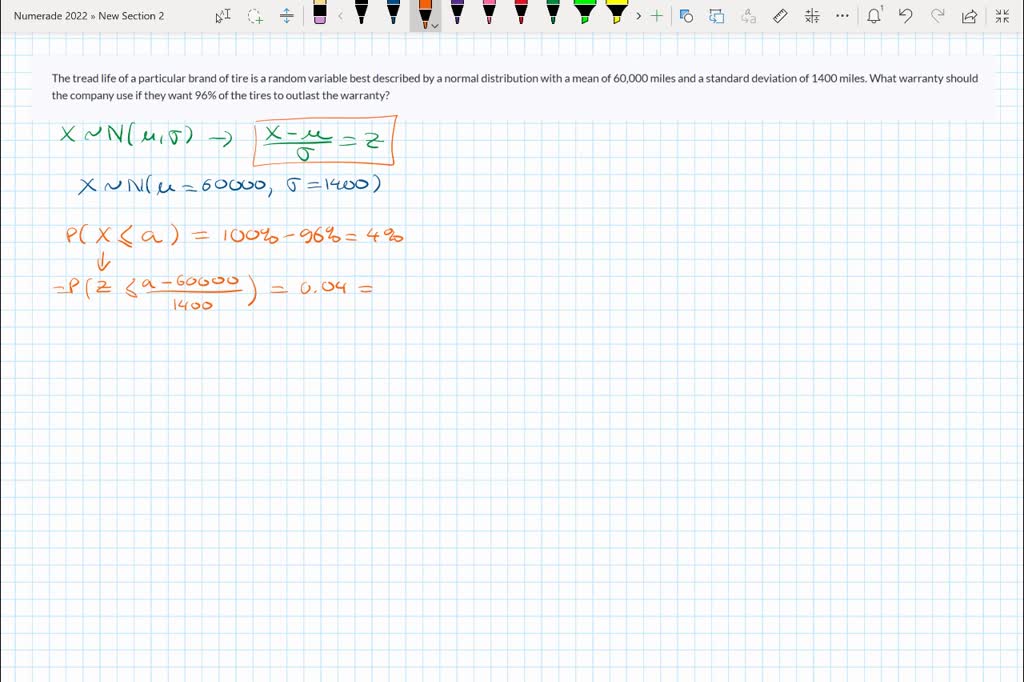 Numerade 2022 » New Section 2
The tread life of a particular brand of tire is a random variable best described by a normal distribution with a mean of 60,000 miles and a standard deviation of 1400 miles. What warranty should
the company use if they want 96% of the tires to outlast the warranty?
X ~ N(μ, σ) → (X - μ)/σ = Z
X ~ N(μ = 60000, σ = 1400)
P(X ≤ a) = 100% - 96% = 4%
↓
= P(Z ≤ (a - 60000)/1400) = 0.04 =